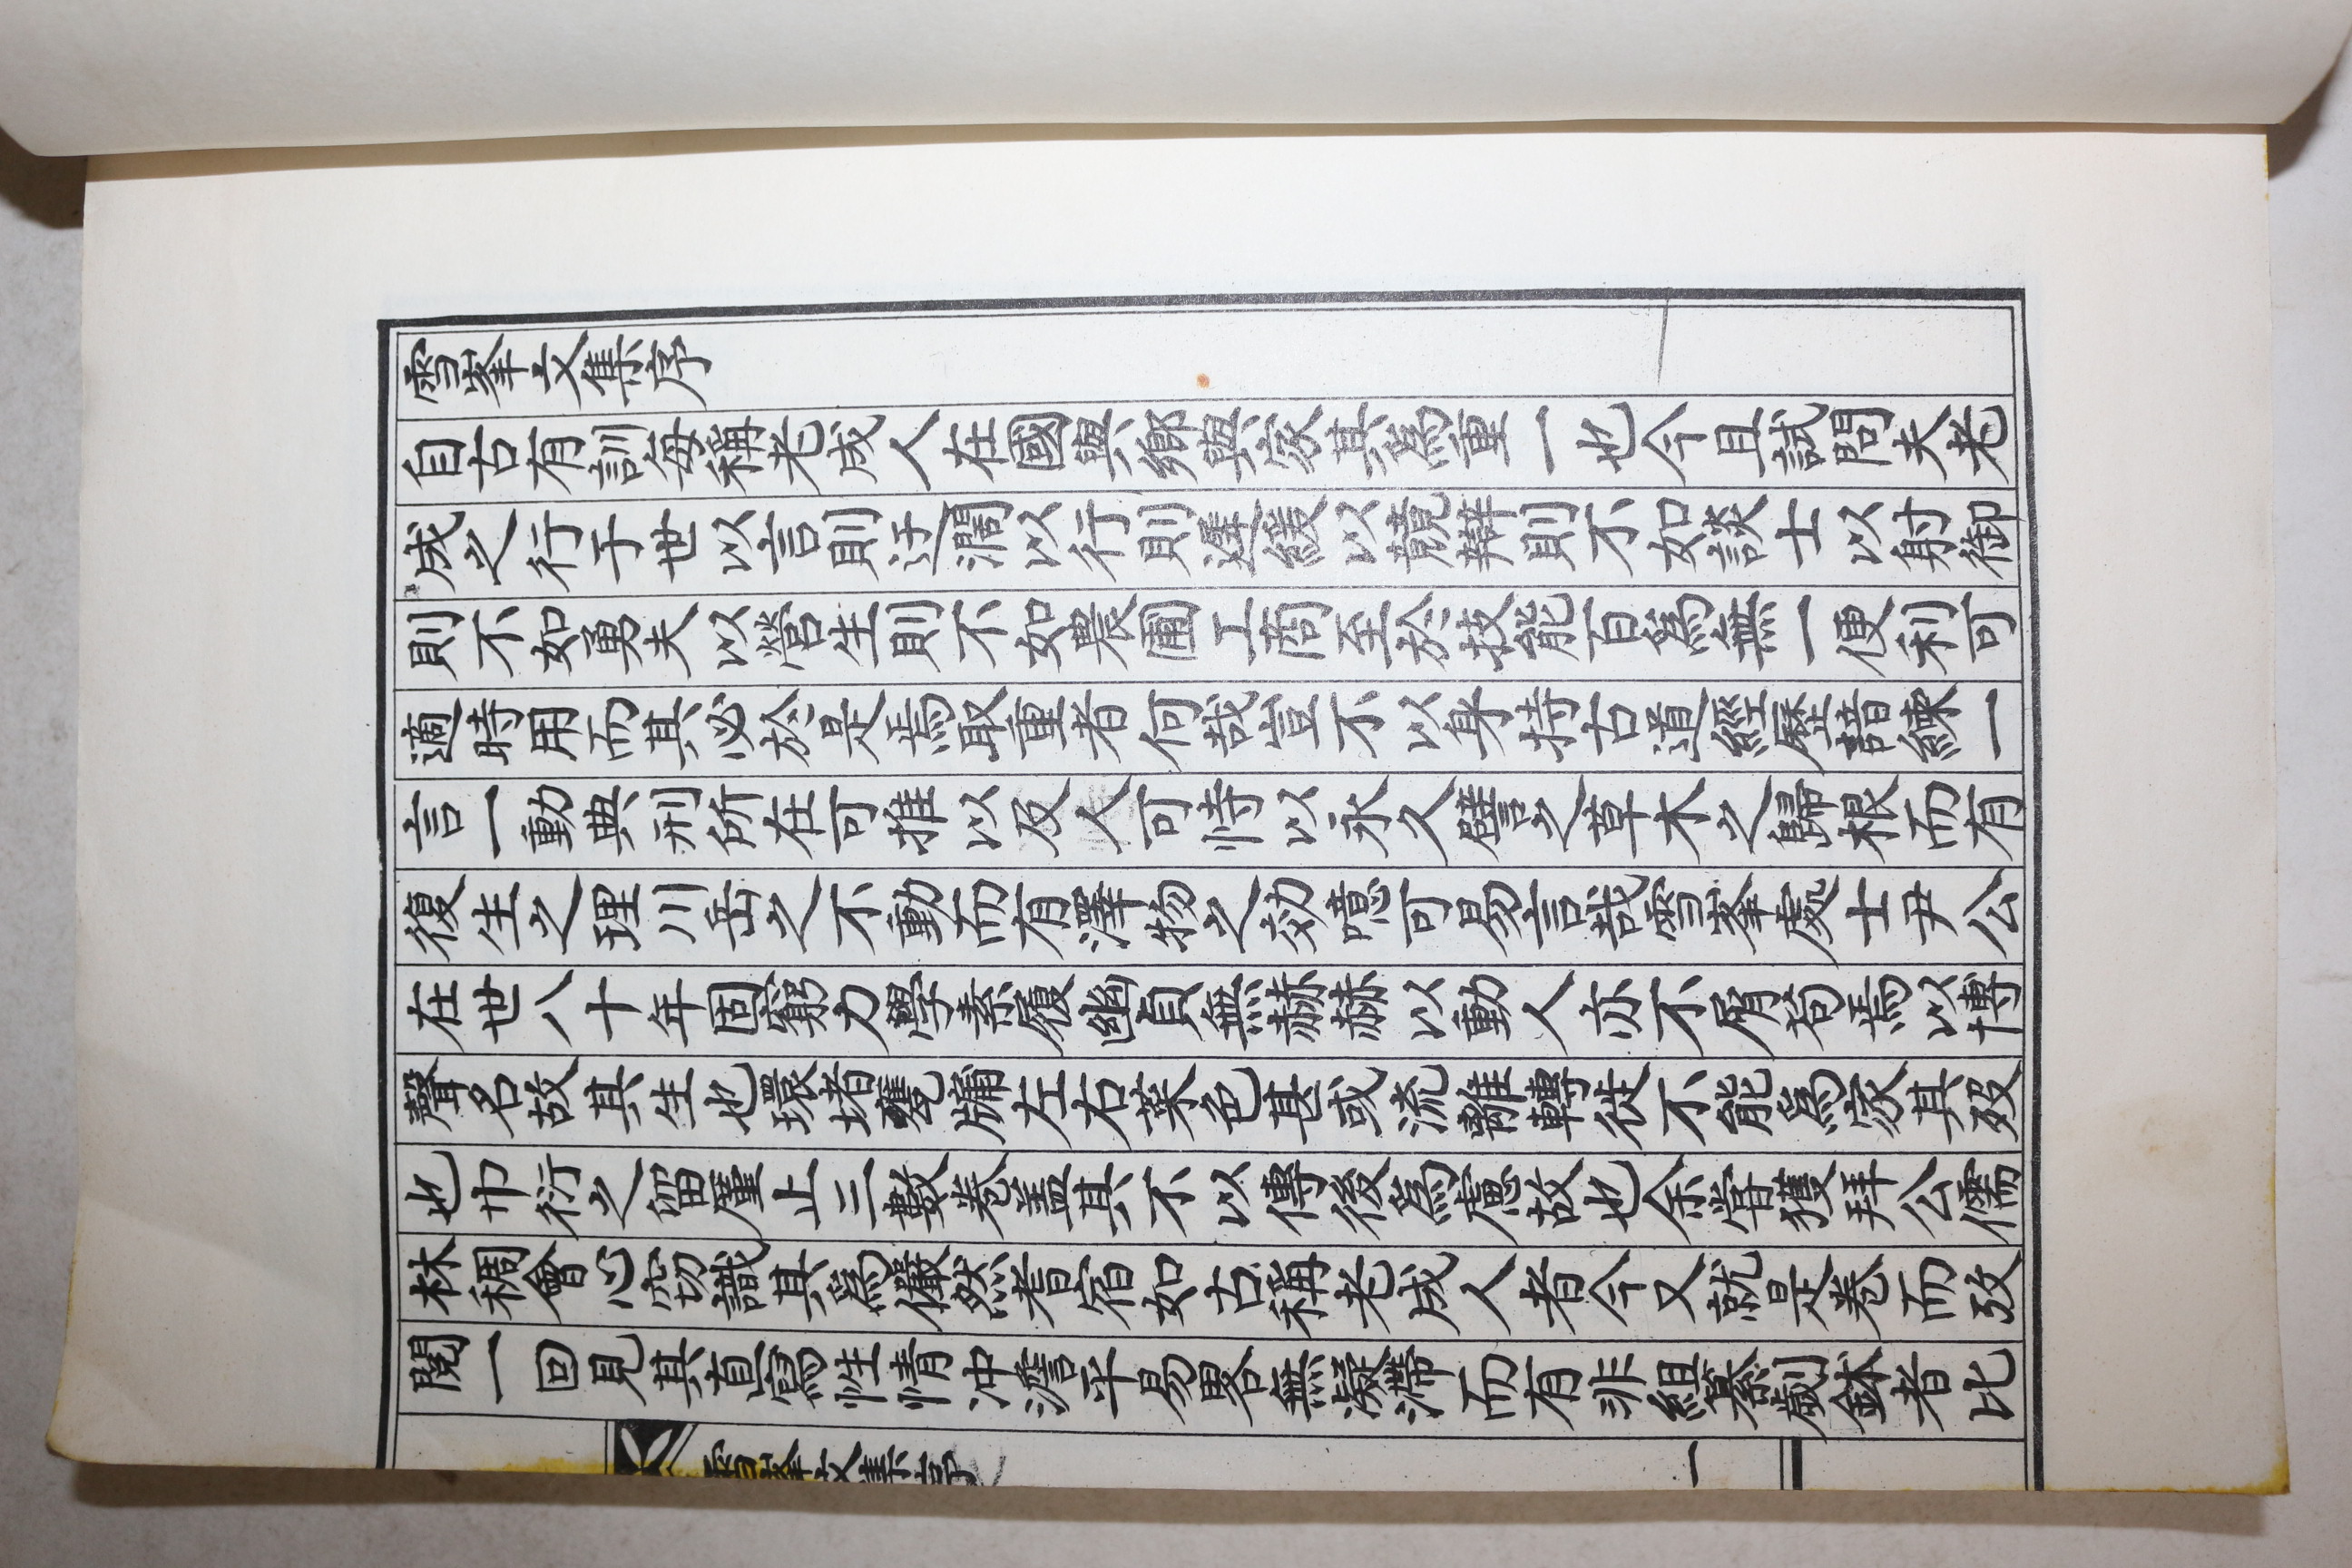 雪峯文集序
自古有訓每稱老成人在國與鄉與家其爲重一也今且試問夫老
成之行于世以言則迂濶以行則遲緩以競辯則不如談士以射御
則不如勇夫以營生則不如農圃工商至於技能百爲無一便利可
適時用而其必於是焉取重者何哉豈不以身持古道經歷諳練一
言一動典刑所在可推以及人可恃以永久譬之草木之歸根而有
復生之理川岳之不動而有澤物之効噫可易言哉雪峯處士尹公
在世八十年固窮力學素履幽貞無赫赫以動人亦不屑苟焉以博
聲名故其生也環堵甕牖左右菜色甚或流離轉徙不能爲家其歿
也巾衍之留廑止三數卷盖其不以傳後爲慮故也余嘗獲拜公儒
林稠會心窃識其爲儼然耆宿如古稱老成人者今又就是卷而攷
閱一回見其直寫性情冲澹平易畧無凝滯而有非組纂劌鉥者比
雪峯文集序
一